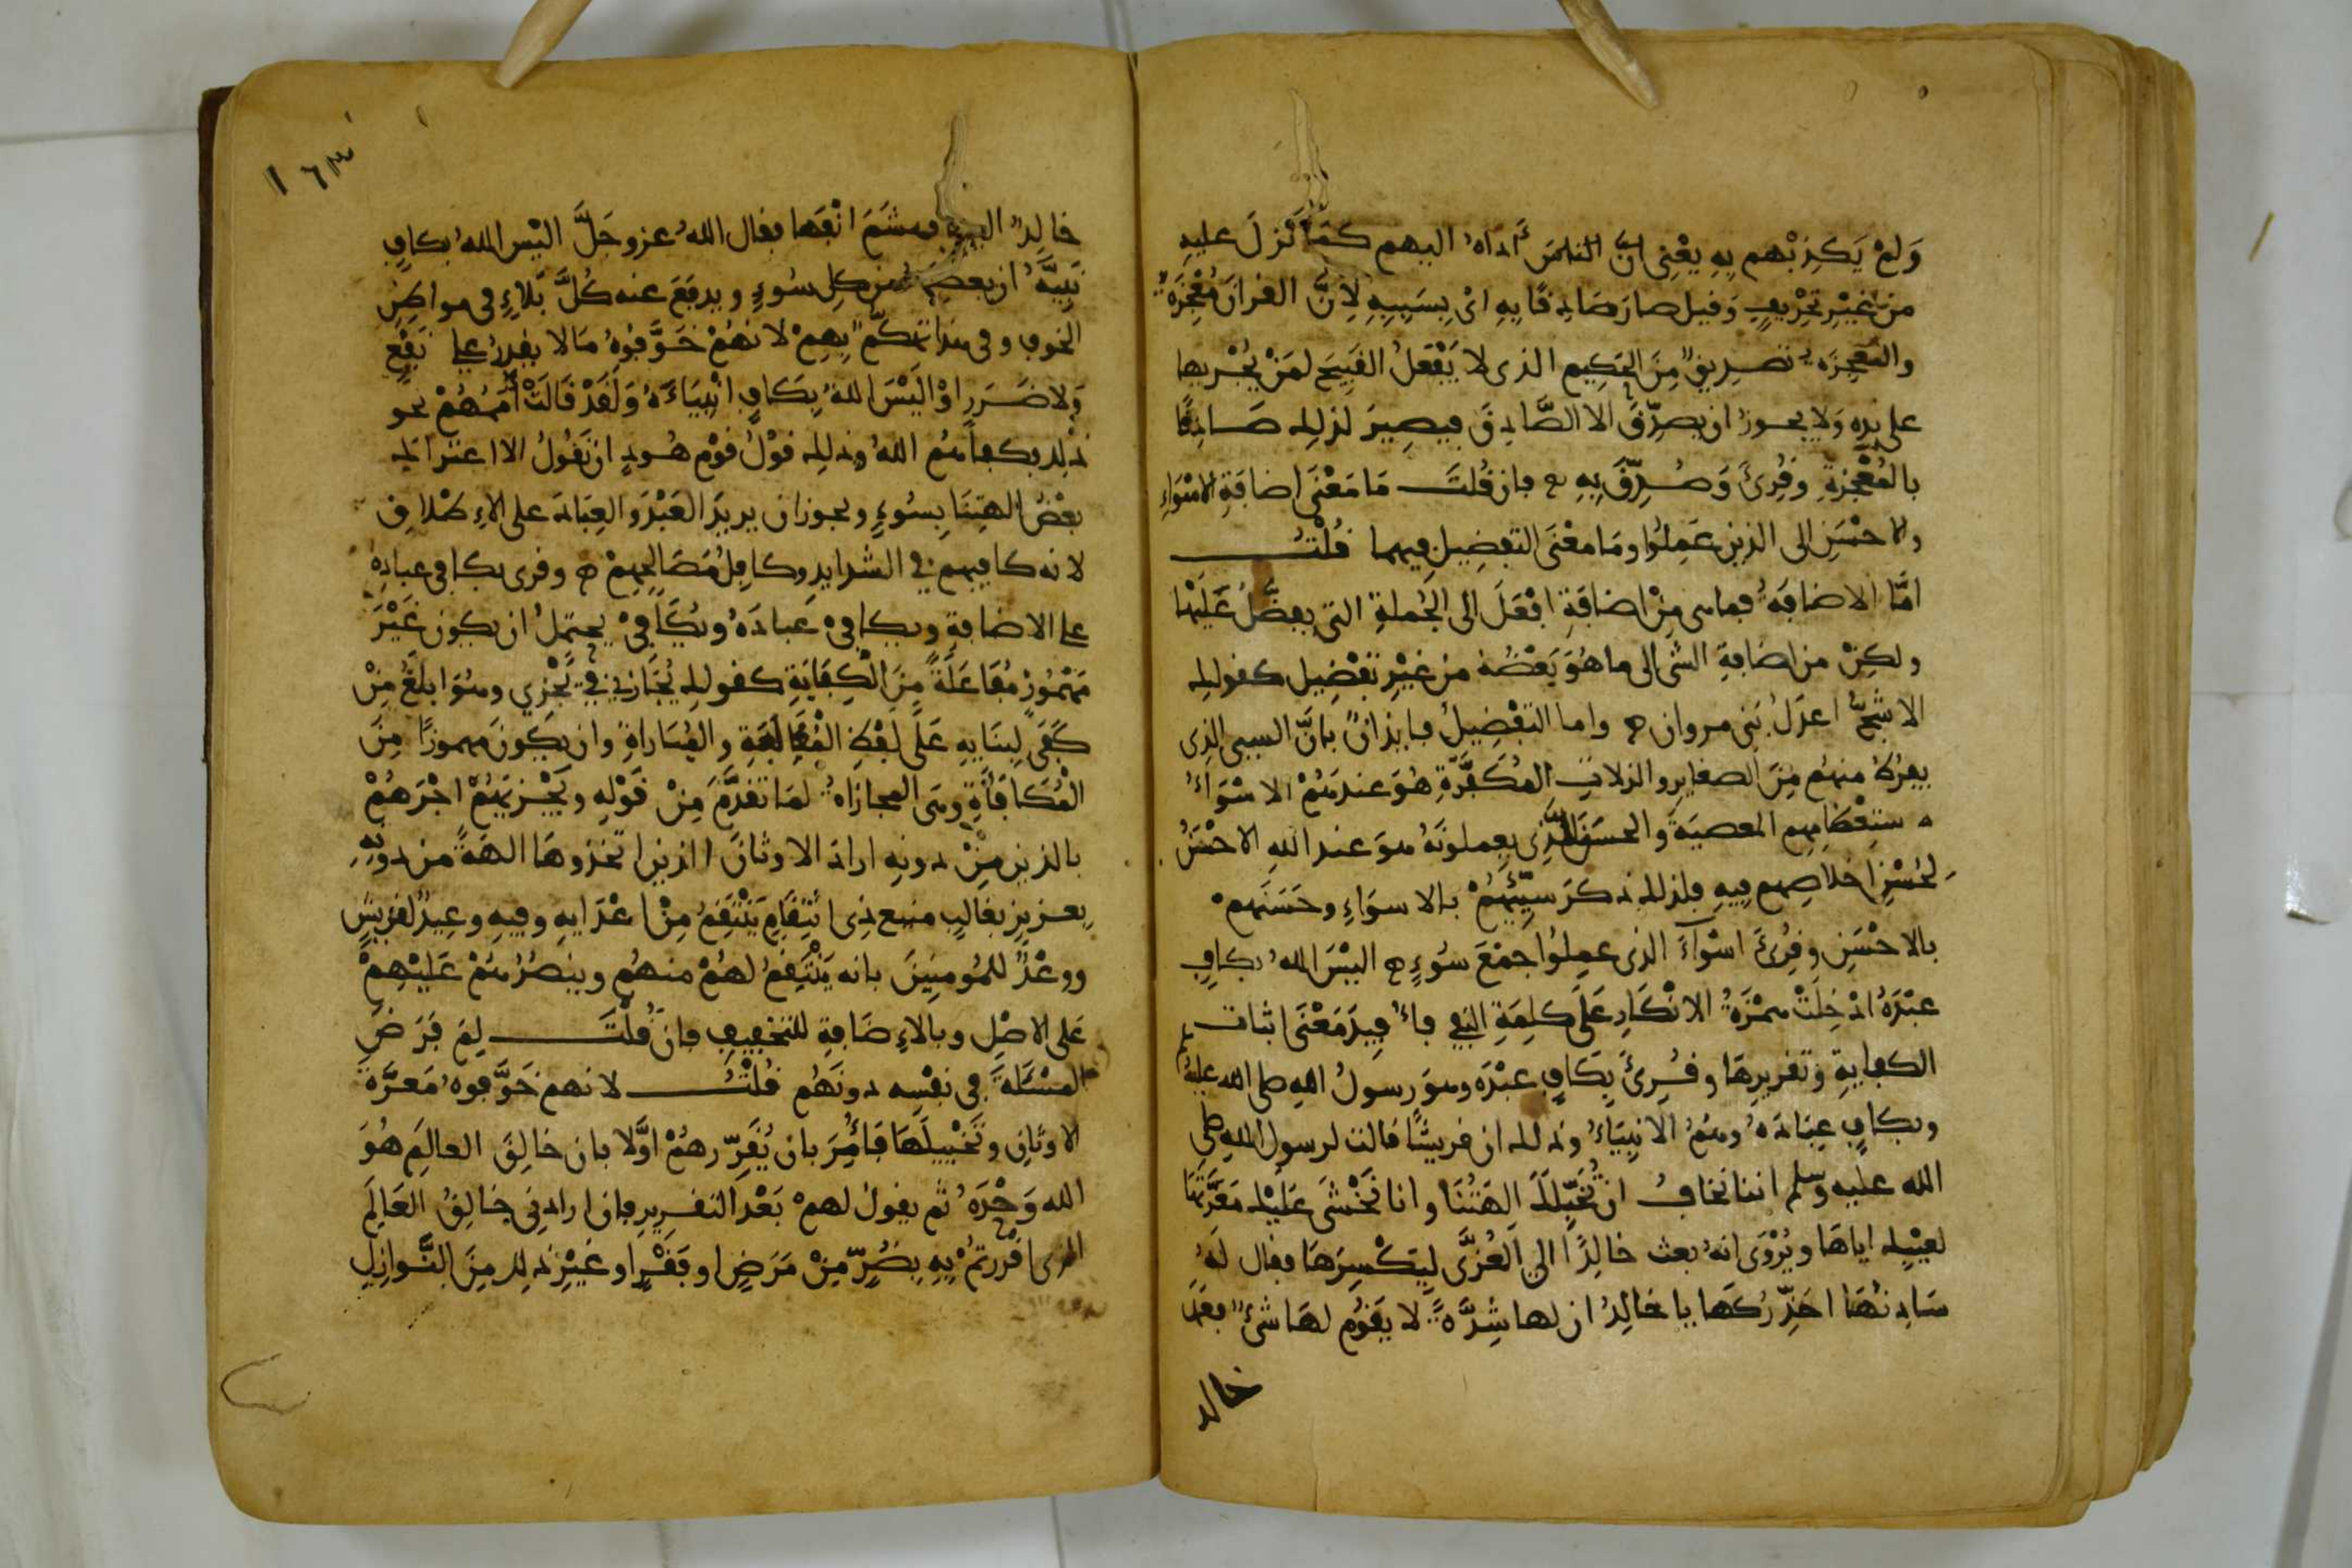 وَلَمْ يَكذِبْهم بِهِ يعْنِى انّ الناسَ أداهُ اليهم كمَا نزلَ عليهِ
من غَيْرِ تحْرِيفٍ وَقيل صارَ صَادِقًا بِهِ اىْ بِسَبِبِهِ لِأنَّ القرانَ مُعْجِزَةٌ
والمعجِزَه تصديقٌ مِنَ الحَكِيم الذى لا يَفْعَلُ القَبِيحَ لمَنْ يُجْريها
على يدِه وَلا يجوزُ ان يصدِّقَ الا الصَّادِقَ فيصِيرَ لذلِك صَادِقًا
بالمُعْجِزةِ وقُرِئَ وَصُدِّقَ بِهِ فان قُلتَ مَا مَعْنَى اضافَةِ الاسْوَاءِ
والاحْسَنِ الى الذِينَ عَمِلُوا ومَا معْنَى التفضِيلِ فِيهما قُلْتُ
امَّا الاضافَهُ فماهى مِنْ اضافَةِ افْعَلَ الى الجُملةِ التى يفضَّلُ عَلَيْها
ولكِنْ من اضافةِ الشى الى ما هُوَ بَعْضُهُ مِنْ غيْرِ تفْضِيل كقولِك
الاشَجُّ اعدَلُ بَنى مروان ه واما التفْضِيلُ فايذانٌ بانَّ السيىء الذِى
يفرُطُ منهُم مِنَ الصغايِرِ والزلاتِ المُكَفَّرَةِ هُوَ عندَهُمْ الاسْوَأُ
لاستِعْظَامِهِم المعصيَةَ والحسَنَ الذِى يعملونَهُ هوَ عند اللهِ الاحْسَنُ
لحُسْنِ اخلاصِهم فيهِ فلذلك ذكرَ سيِّئَهُمْ بالاسوَاءِ وحَسَنَهمْ
بالاحْسَنِ وقُرِئَ اسْوَآءَ الذى عمِلُوا جمْعَ سُوءٍ ه اليْسَ اللهُ بكافٍ
عبْدَهُ ادْخِلَتْ همْزَةُ الانْكَارِ عَلى كلِمَةِ النفى فأُفِيدَ مَعْنَى اثبات
الكفايةِ وتقريرِهَا وقُرِئَ بِكافٍ عبْدَه وهوَ رسولُ اللهِ صلى الله عليهِ
وبكافٍ عِبَادَهُ وهُمُ الانبِيَاءُ وذلك ان قريشًا قالت لرسول اللهِ صلى
الله عليه وسلم اننا نخافُ انْ تُخَبِّلكَ الهتُنَا وانا نَخْشَى عَليْك مَعَرَّتَهَا
لعيْبِك اياهَا ويُرْوَى انهُ بعث خالِدًا الى العُزَّى لِيَكْسِرَهَا فقال لَهُ
سَادِنُهَا احَذِّرُكَهَا يا خالِدُ ان لها شِدَّةً لا يَقُوم لهَا شىءٌ فعَمَد
خالد
١٦٣
خالِدٌ اليها فهشَمَ انْفَها فقال اللهُ عز وجَلَّ اليْس اللهُ بكافٍ
نَبِيَّهُ ان يعصِمَهُ من كلِ سُوءٍ ويدفَعَ عنه كُلَّ بَلاءٍ فى مواطِنِ
الخوفِ وفى هذا تهكّمٌ بِهِمْ لانهُمْ خَوَّفُوهُ مَا لا يقدِرُ على نَفْعٍ
وَلا ضَرَرٍ اوْ اليْسَ اللهُ بِكَافٍ انْبِيَاءَهُ وَلَقَدْ قَالَتْ أُمَمُهُمْ نحو
ذلك فكفاهُم اللهُ وذلِك قوْلُ قوْم هُودٍ ان نقُولُ الا اعْتَراكَ
بعْضُ الهتِنَا بِسُوءٍ ويجوز ان يريدَ العَبْدَ والعِبَادَ على الاطْلاقِ
لانه كافيهم فى الشدايدِ وكافِلُ مُصَالِحِهِمْ ه وقرى بكافى عبادِهِ
على الاضافةِ ويكافى عبادَهُ ويُكَافِىْ يحتمِلُ ان يكون غَيْرَ
مَهْمُوزٍ مُفَاعَلَةً مِنَ الْكِفَايَةِ كقولِك يُجَازِى فى يَجْزِي وهُوَ ابلَغُ مِنْ
كَفَى لِبِنَايِهِ عَلَى لفْظِ الْمُغَالَبَةِ والمُبَاراةِ وان يكونَ مهموزًا مِنَ
الْمُكَافَأَةِ وهى المجازاهُ لمَا تقدَّمَ مِنْ قَوْلِهِ ويَجْزيَهُمْ اجْرَهُمْ
بالذين مِنْ دونِهِ اراد الاوثانَ الذين اتخذوهَا الهَةً من دونِهِ
بعزيزٍ بغالِبٍ منيع ذِى انْتِقَامٍ يَنْتَقِمُ مِنْ اعْدَايهِ وفيهِ وعِيدٌ لقريشٍ
ووعْدٌ للمُومنِينَ بانه يَنْتَقِمُ لهُمْ منهُم وينصُرُهُمْ عَليْهِمْ
عَلى الاصْلِ وبالاضَافةِ للتخفيفِ فان قُلْتَ لِمَ فَرَضَ
المسْئلَةَ فى نفْسِه دونَهُم قُلْتُ لانهم خَوَّفوهُ مَعَرَّةَ
الاوثانِ وتَخْبِيلَهَا فَأُمِرَ بان يُقَرِّرهُمْ اوَّلا بان خالِقَ العالَمِ هُوَ
الله وَحْدَهُ ثم يقولَ لهمْ بَعْدَ التقريرِ فان ارادنِى خالِقُ العَالَمِ
الذى اقررتمْ بِهِ بِضُرٍّ مِنْ مَرَضٍ او فَقْرٍ او غَيْرِ ذلك مِنَ النَّوازِلِ